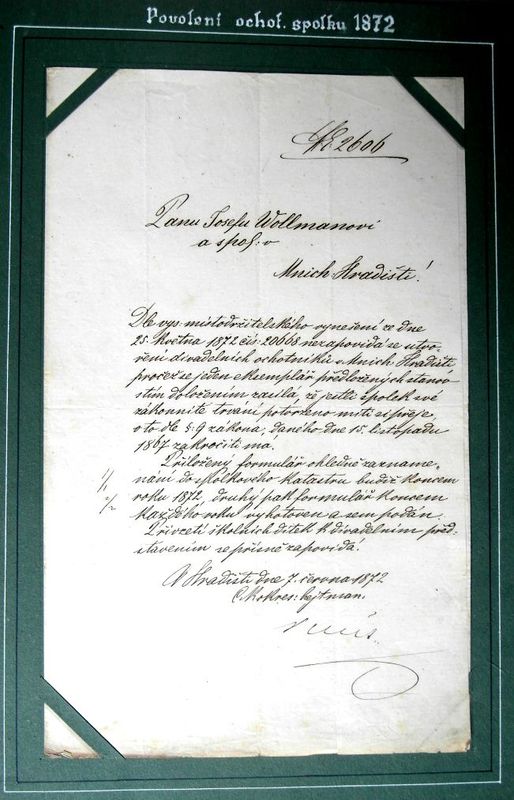 Povolení ochot. spolku 1872
NE 2606
Panu Josefu Wollmanovi
a spol: v
Mnich. Hradišti!
Dle vys. místodržitelského vynešení ze dne
25. května 1872 čís: 20668 nezapovídá se utvo-
ření divadelních ochotníků v Mnich. Hradišti
pročež se jeden exemplář předložených stanov
s tím doložením zasílá, že jestli spolek své
zákonnité trvání potvrzeno míti si přeje,
o to dle §: 9 zákona, daného dne 15. listopadu
1867 zakročiti má.
Přiložený formulář ohledně zazname-
1/1 nání do spolkového katastru budiž koncem
2/2 roku 1872, druhý pak formulář koncem
každého roku vyhotoven a sem podán.
Přivzetí školních dítek k divadelním před-
stavením se přísně zapovídá.
V Hradišti dne 7. června 1872
C. k. okres: hejtman.